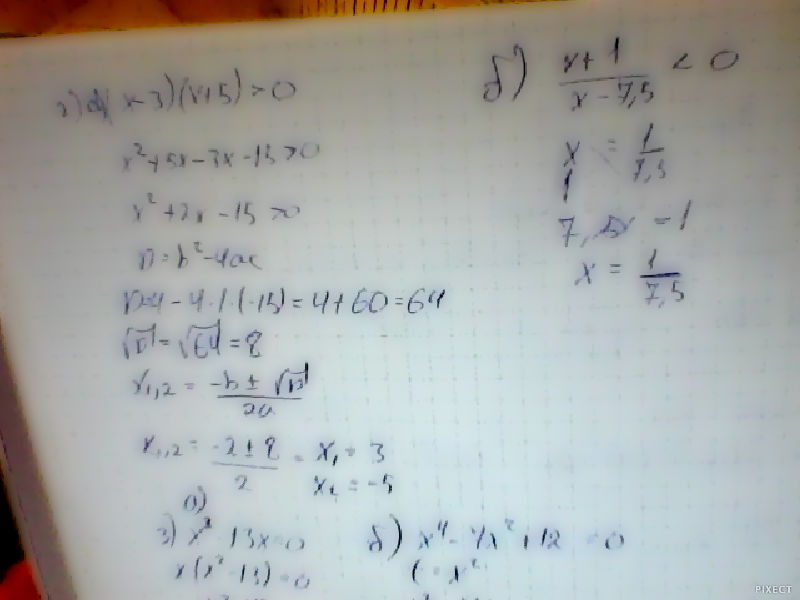 2) а) (x-3)(x+5) > 0
x²+5x-3x-15>0
x²+2x-15>0
D=b²-4ac
D=4-4·1·(-15)=4+60=64
√D=√64=8
x₁,₂ = (-b±√D)/2a
x₁,₂ = (-2±8)/2 = x₁ = 3
x₂ = -5
б) (x+1)/(x-7,5) < 0
x/1 = 1/7,5
7,5x = 1
x = 1/7,5
а)
3) x³-13x=0
x(x²-13)=0
б) x⁴-7x²+12=0
PIXECT